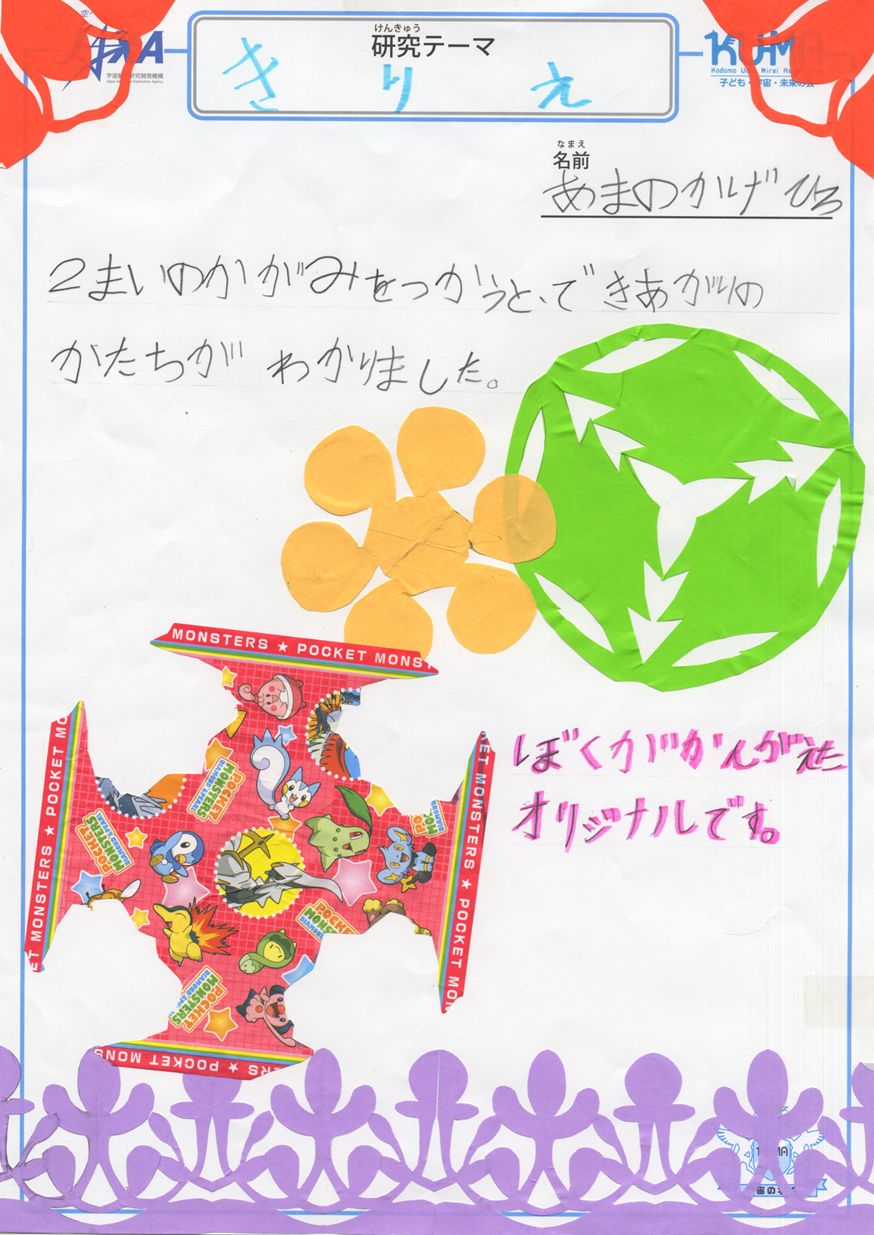 けんきゅう
研究テーマ
きりえ
KUMA
Kodomo Uchu Mirai Association
子ども・宇宙・未来の会
なまえ
名前
あまのかげひろ
2まいのかがみをつかうと、できあがりの
かたちがわかりました。
MONSTERS ★ POCKET MONST
POCKET MO
MONSTERS ★ POCKET MO
ET MONSTERS ★ POCKET MO
POCKET MONSTERS
POCKET MONSTERS
POCKET MONSTERS
ぼくがかんがえた
オリジナルです。
★ POCKET MONS